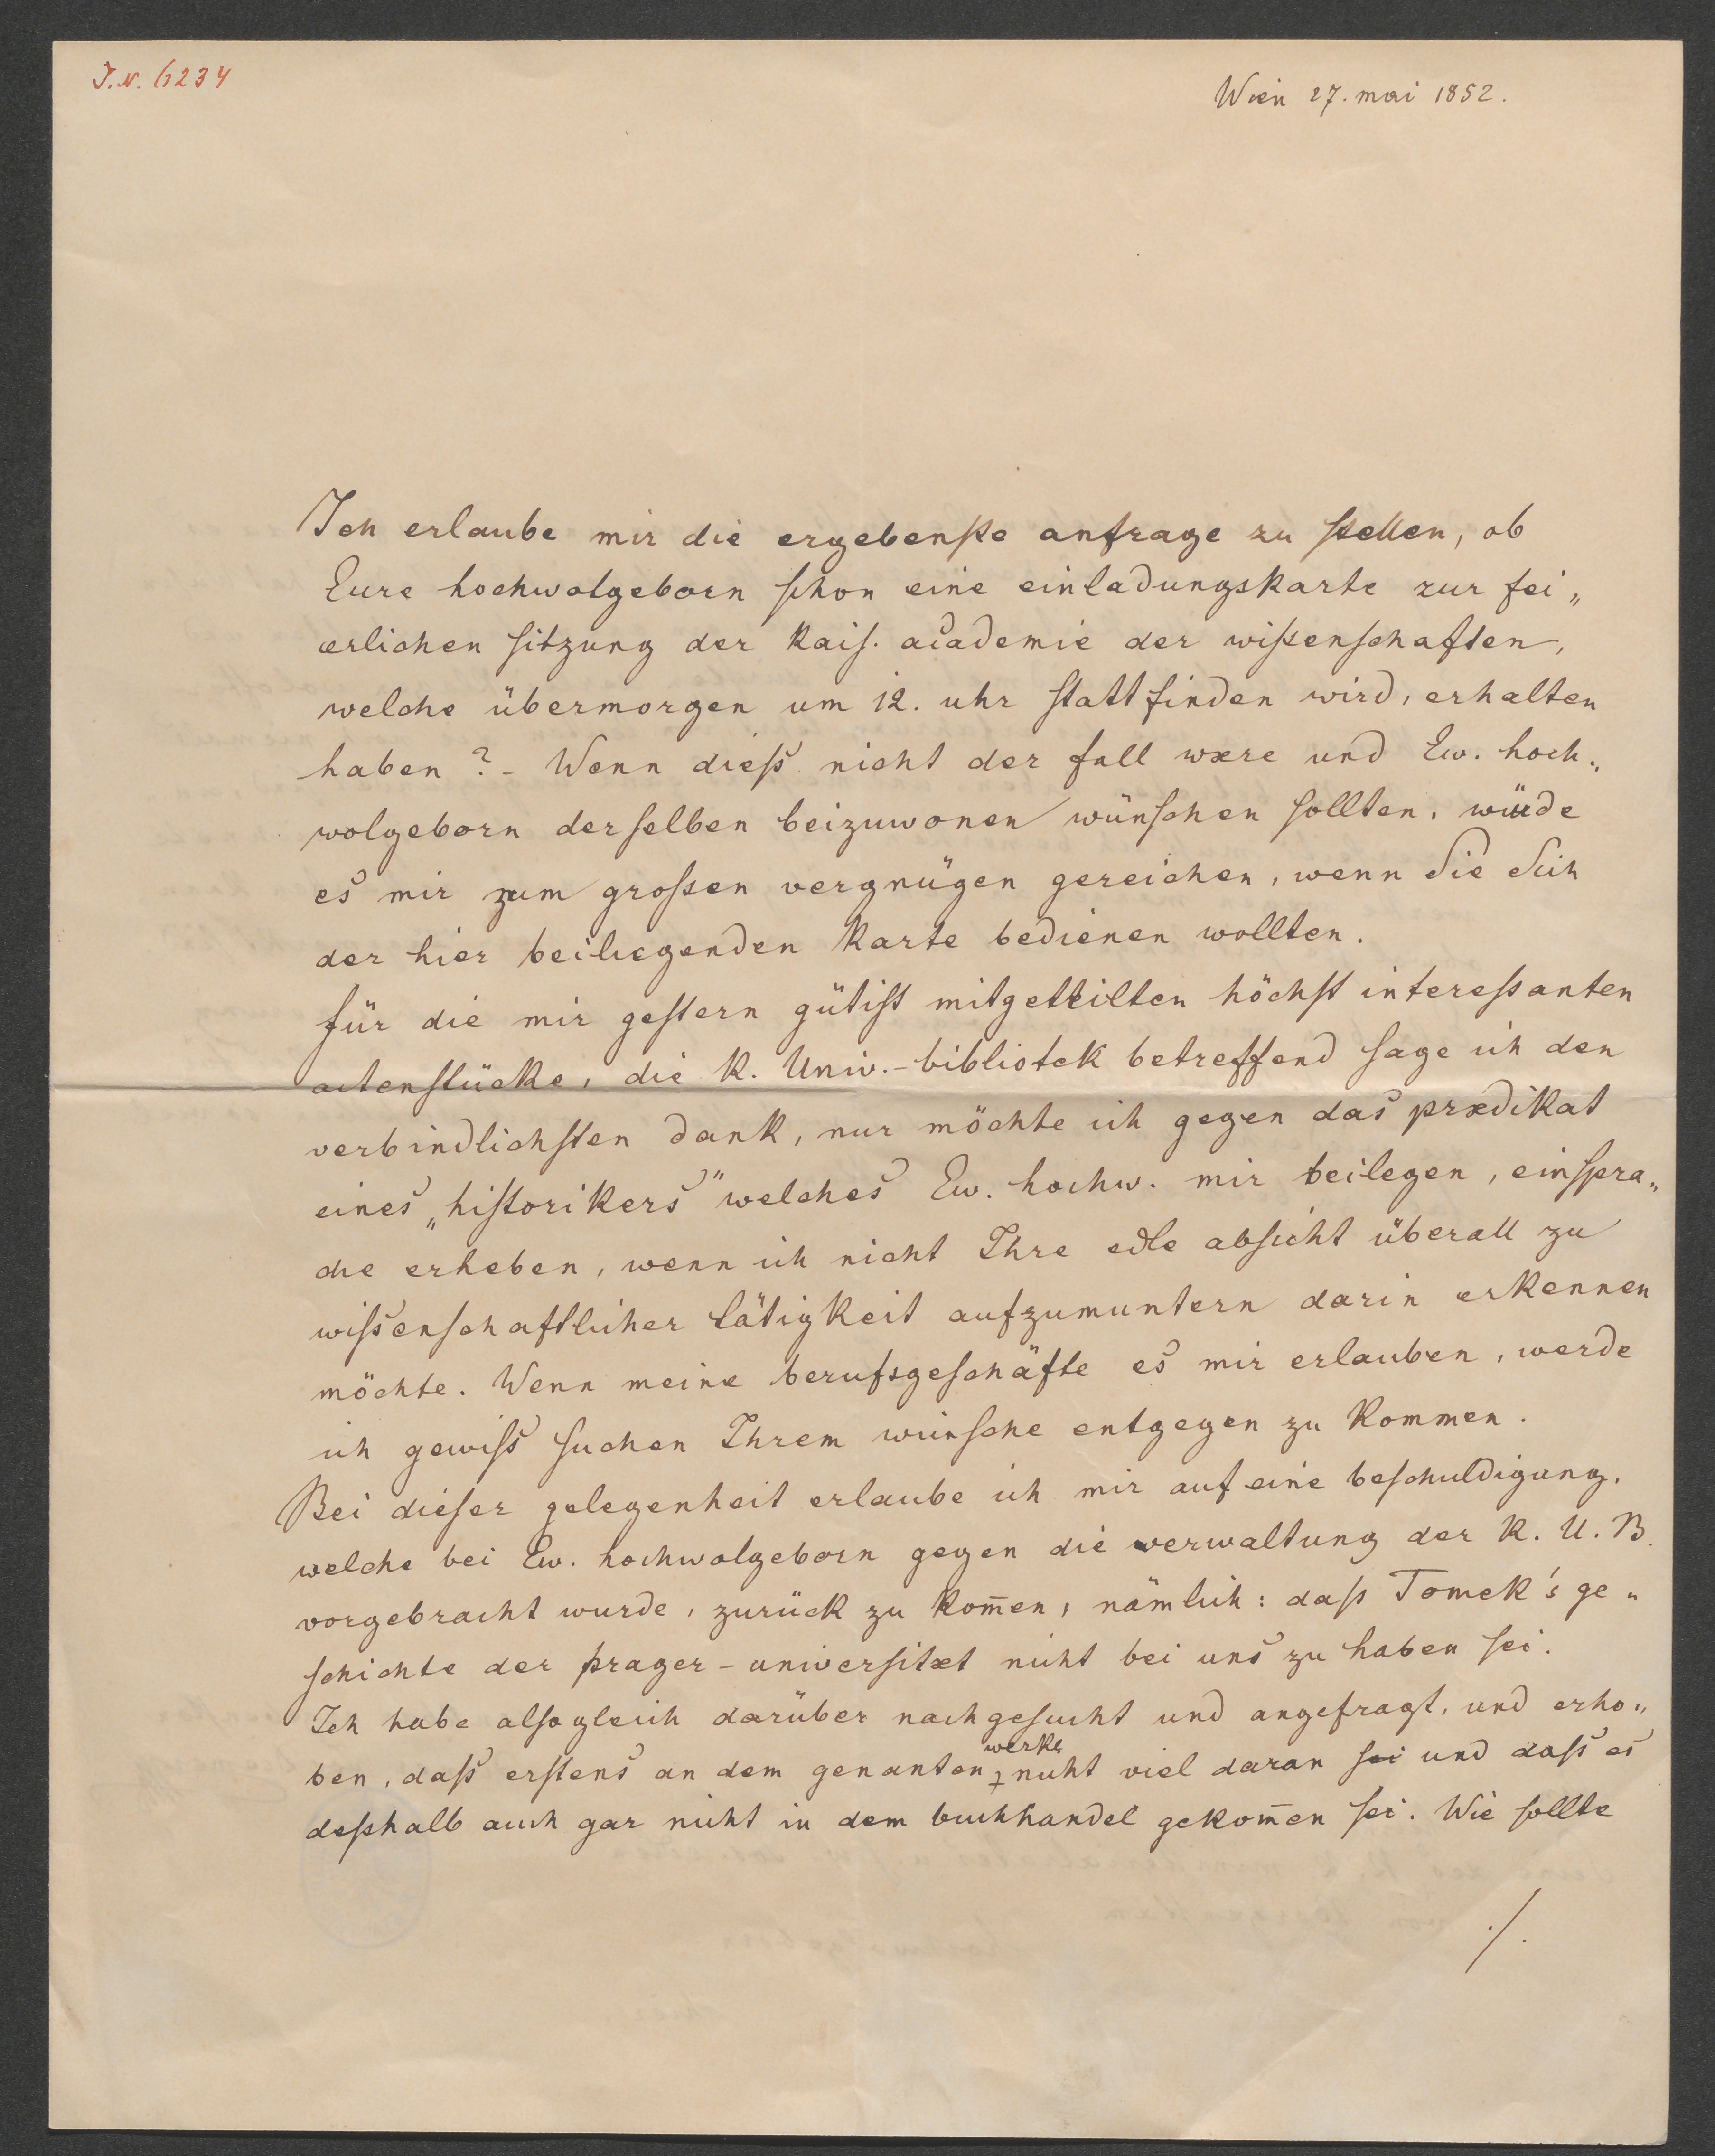 I.N. 6234
Wien 27. mai 1852.
Ich erlaube mir die ergebenste anfrage zu stellen, ob
Eure hochwolgeborn schon eine einladungskarte zur fei„
erlichen sitzung der kais. academie der wißenschaften,
welche übermorgen um 12. uhr stattfinden wird, erhalten
haben? – Wenn dieß nicht der fall wære und Ew. hoch„
wolgeborn derselben beizuwonen wünschen sollten, würde
es mir zum großen vergnügen gereichen, wenn Sie Sich
der hier beiliegenden karte bedienen wollten.
für die mir gestern gütist mitgeteilten höchst interessanten
actenstücke, die k. Univ.-bibliotek betreffend sage ich den
verbindlichsten dank, nur möchte ich gegen das prædikat
eines „historikers" welches Ew. hochw. mir beilegen, einspra„
che erheben, wenn ich nicht Ihre edle absicht überall zu
wissenschaftlicher tätigkeit aufzumuntern darin erkennen
möchte. Wenn meine berufsgeschäfte es mir erlauben, werde
ich gewiss suchen Ihrem wunsche entgegen zu kommen.
Bei dieser gelegenheit erlaube ich mir auf eine beschuldigung,
welche bei Ew. hochwolgeborn gegen die verwaltung der k. U. B.
vorgebracht wurde, zurück zu kom̅en, nämlich: dass Tomek's ge„
schichte der prager-universitæt nicht bei uns zu haben sei.
Ich habe alsogleich darüber nachgesucht und angefragt, und erho„
ben, daß erstens an dem genanten werke nicht viel daran sei und dass es
deßhalb auch gar nicht in dem buchhandel gekom̅en sei. Wie sollte
./.